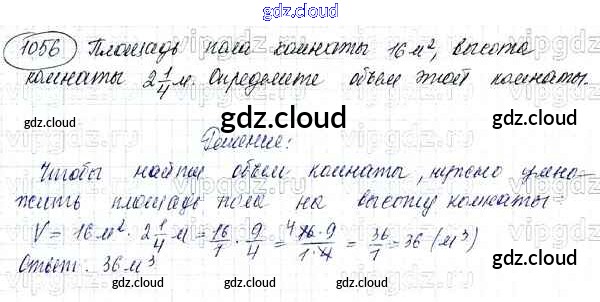 gdz.cloud
1056 Площадь пола комнаты 16 м², высота
комнаты 2 1/4 м. Определите объем этой комнаты.
gdz.cloud gdz.cloud
Решение:
Чтобы найти объем комнаты, нужно умно-
жить площадь пола на высоту комнаты
gdz.cloud gdz.cloud
V = 16 м² · 2 1/4 м = 16/1 · 9/4 = 16·9/1·4 = 36/1 = 36 (м³)
Ответ: 36 м³
gdz.cloud gdz.cloud